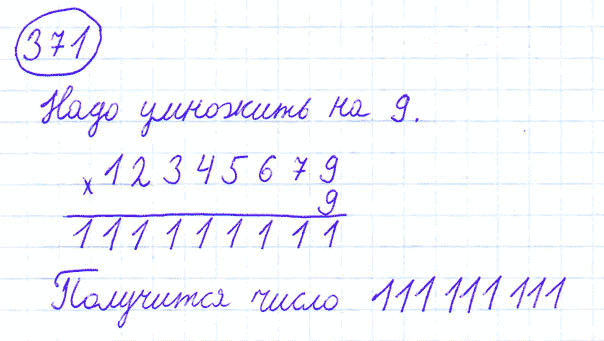 371
Надо умножить на 9.
× 12345679
9
111111111
Получится число 111 111 111